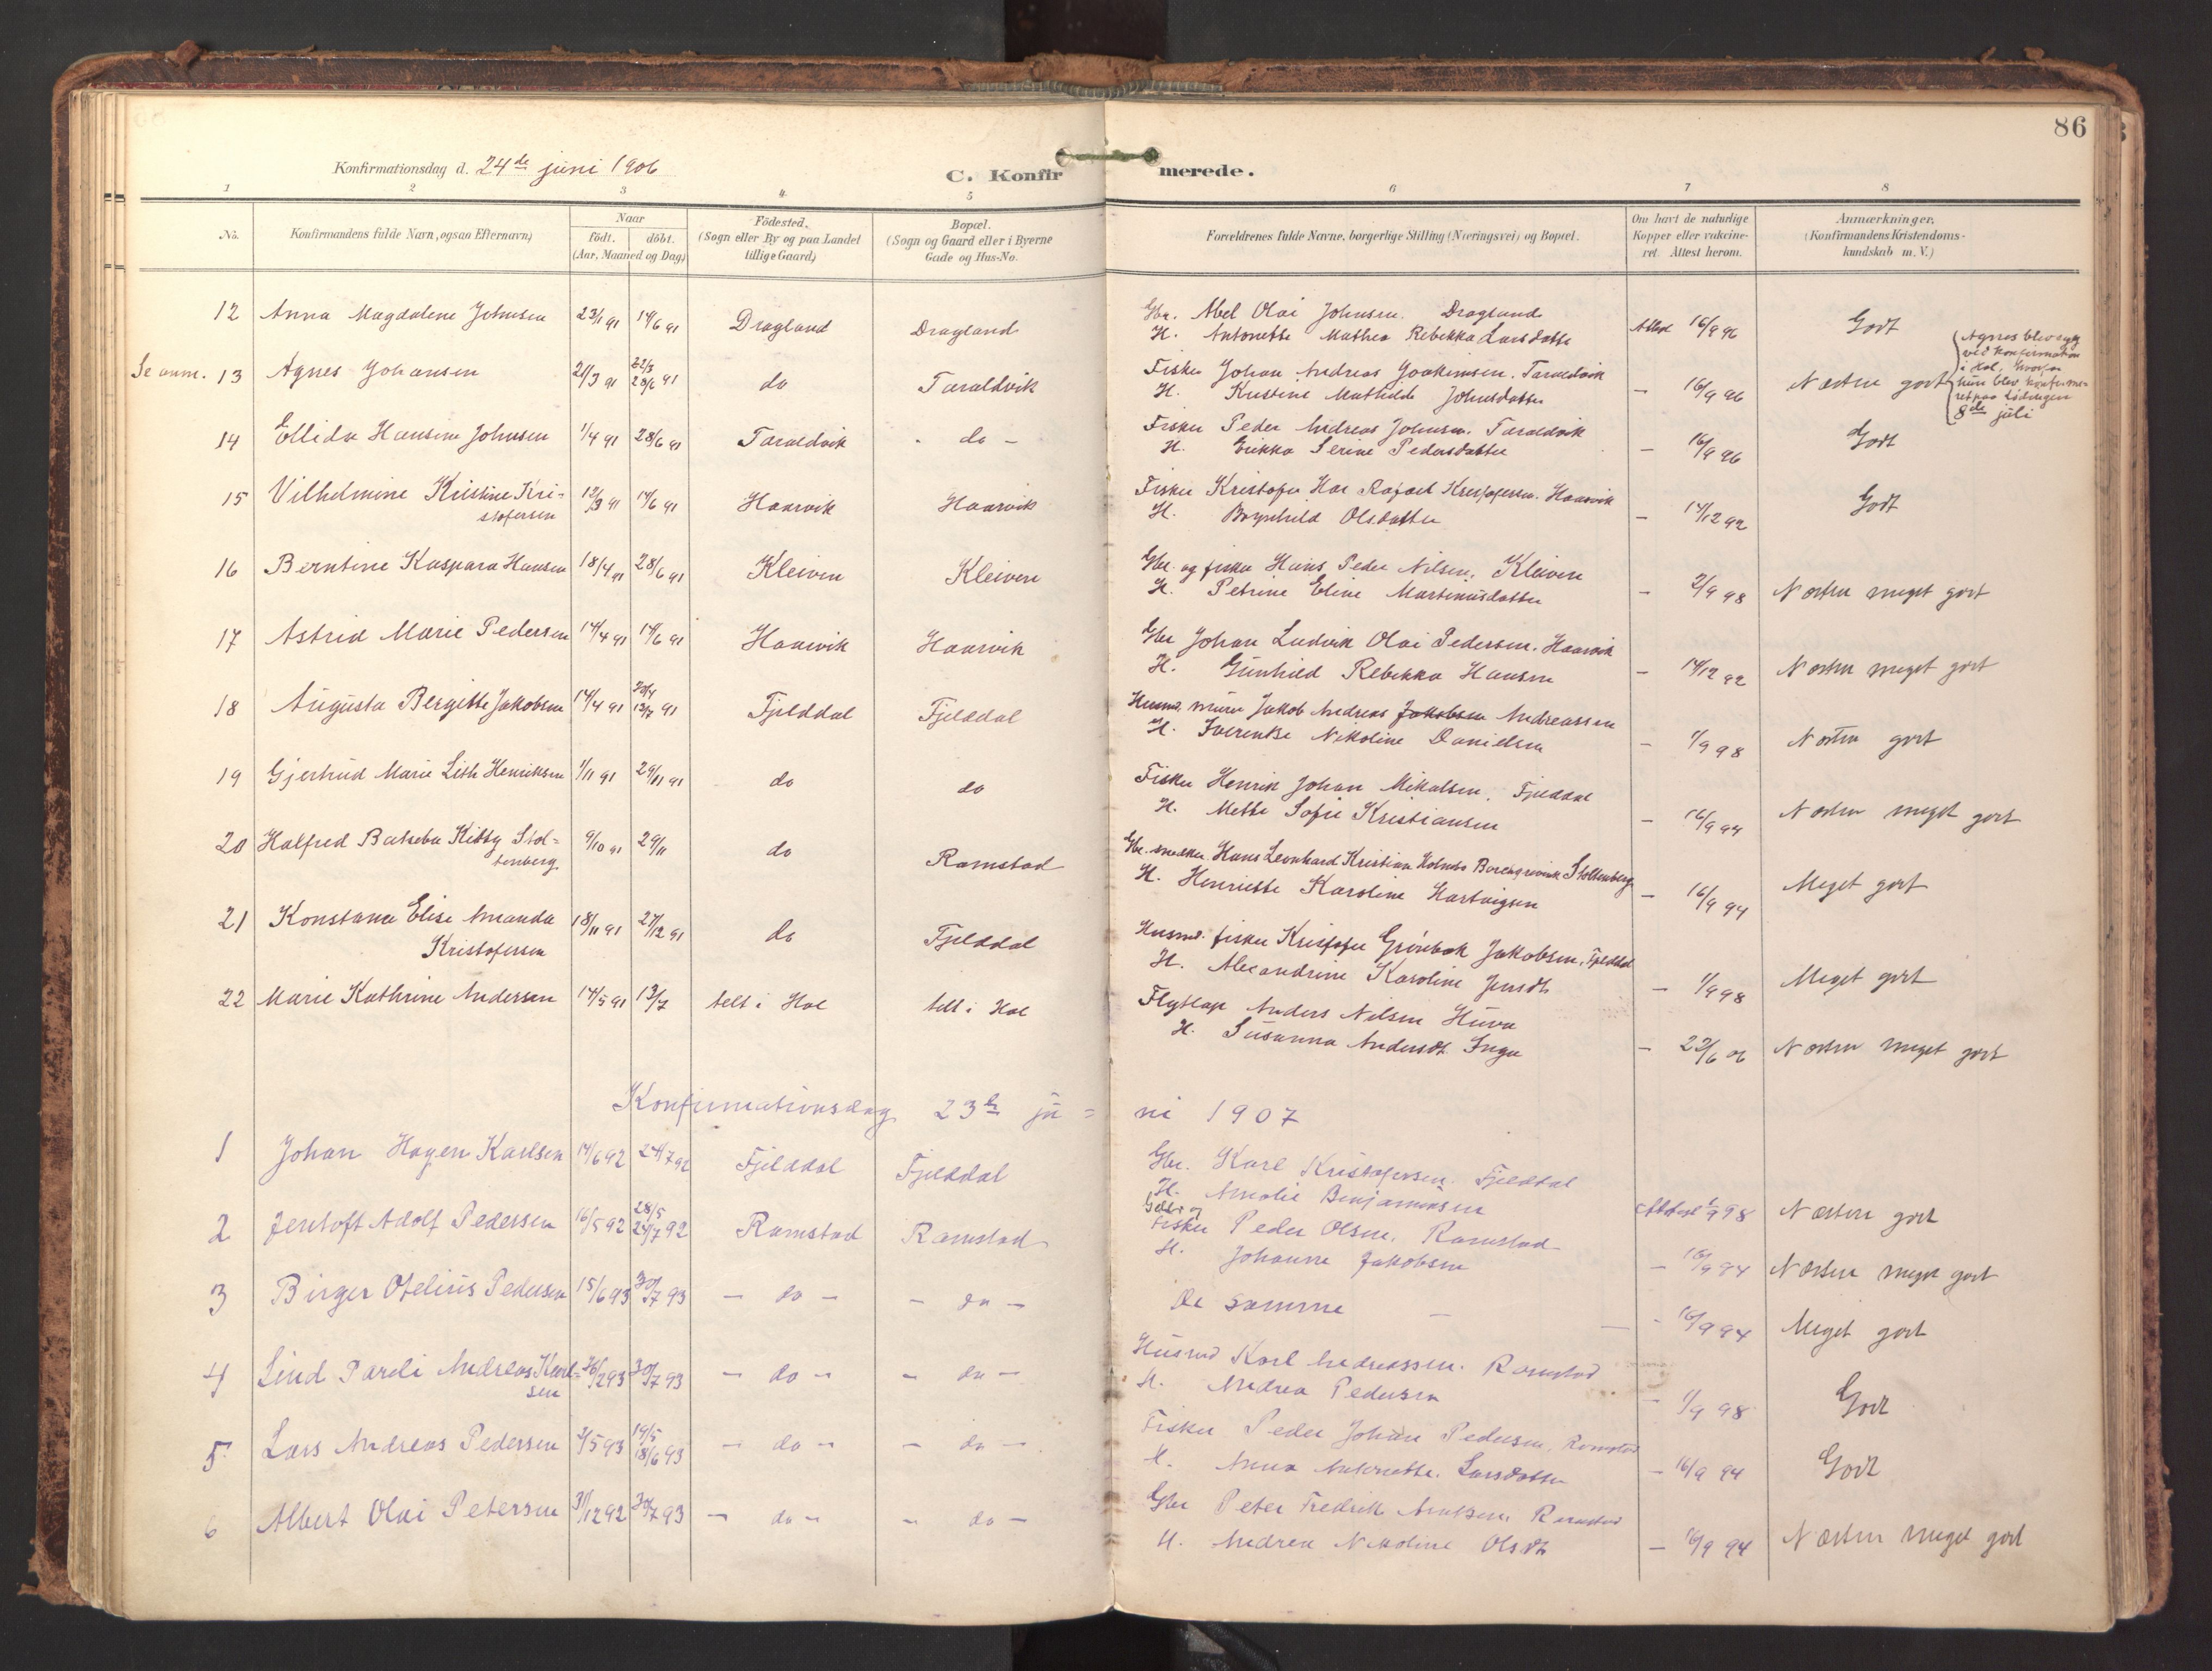 86
Konfirmationsdag d. 24de juni 1906
C. Konfirmerede.
1 2 3 4 5 6 7 8
No.
Konfirmandens fulde Navn, ogsaa Efternavn)
Naar
födt. döbt.
(Aar, Maaned og Dag)
Födested.
(Sogn eller By og paa Landet
tillige Gaard)
Bopæl.
(Sogn og Gaard eller i Byerne
Gade og Hus-No.
Forældrenes fulde Navne, borgerlige Stilling (Næringsvei) og Bopæl.
Om havt de naturlige
Kopper eller vakcine-
ret. Attest herom.
Anmærkninger.
(Konfirmandens Kristendoms-
kundskab m. V.)
12 Anna Magdalene Johnsen 23/1 91 14/6 91 Dragland Dragland Gbr. Abel Olai Johnsen. Dragland
H. Antonette Mathea Rebekka Larsdatter Attest 16/9 96 Godt
Se anm. 13 Agnes Johansen 21/3 91 22/3 28/6 91 do Taraldvik Fisker Johan Andreas Joakimsen. Taraldvik
H. Kristine Mathilde Johnsdatter - 16/9 96 Næsten godt
Agnes blev syg
ved konfirmation
i Hol, hvorfor
hun blev konfirme-
ret paa Lødingen
8de juli
14 Ellida Hansine Johnsen 1/4 91 28/6 91 Taraldvik - do - Fisker Peder Andreas Johnsen. Taraldvik
H. Erikka Serine Pedersdatter - 16/9 96 Godt
15 Vilhelmine Kristine Kri-
stofersen 12/3 91 14/6 91 Haarvik Haarvik Fisker Kristofer Rafael Kristofersen. Haarvik
H. Brynhild Olsdatter - 14/12 92 Godt
16 Berntine Kaspara Hansen 18/4 91 28/6 91 Kleiven Kleiven Gbr. og fisker Hans Peder Nilsen. Kleiven
H. Petrine Eline Martinusdatter - 2/9 98 Næsten meget godt
17 Astrid Marie Pedersen 14/4 91 14/6 91 Haarvik Haarvik Gbr Johan Ludvik Olai Pedersen. Haarvik
H. Gunhild Rebekka Hansen - 14/12 92 Næsten meget godt
18 Augusta Bergitte Jakobsen 14/4 91 13/7 91 Fjelddal Fjelddal Husmd. murer Jakob Andreas Jakobsen Andreassen
H. Nikoline Danielsen - 1/9 98 Næsten godt
19 Gjertrud Marie Lith Henriksen 1/11 91 29/11 91 do do Fisker Henrik Johan Mikalsen. Fjelddal
H. Mette Sofie Kristiansen - 16/9 94 Næsten meget godt
20 Halfred Batseba Kitty Stol-
tenberg 9/10 91 29/11 do Ramstad Gbr. snedker Hans Leonhard Kristian Stoltenberg
H. Henriette Karoline Hartvigsen - 16/9 94 Meget godt
21 Konstance Elise Amanda
Kristofersen 18/11 91 27/12 91 do Fjelddal Husmd. fisker Kristofer Grönbek Jakobsen, Fjelddal
H. Alexandrine Karoline Jensdt - 1/9 98 Meget godt
22 Marie Kathrine Andersen 14/5 91 13/7 telt i Hol telt i Hol Flytlap Anders Nilsen Huva
H. Susanna Andersdt. Inga - 22/6 06 Næsten meget godt
Konfirmationsdag 23de ju = ni 1907
1 Johan Hagen Karlsen 14/6 92 24/7 92 Fjelddal Fjelddal Gbr. Karl Kristofersen. Fjelddal
H. Amalie Benjaminsen Attest 1/9 98 Næsten godt
2 Jentoft Adolf Pedersen 16/5 92 28/5 24/7 92 Ramstad Ramstad Gbr og
Fisker Peder Olsen. Ramstad
H. Johanne Jakobsen - 16/9 94 Næsten meget godt
3 Birger Otelius Pedersen 15/6 93 30/7 93 - do - - do - De samme - - 16/9 94 Meget godt
4 Lind Pareli Andreas Karl-
sen 26/2 93 30/7 93 - do - - do - Husmd Karl Andreassen. Ramstad
H. Andrea Pedersen - 1/9 98 Godt
5 Lars Andreas Pedersen 2/5 93 19/5 18/6 93 - do - - do - Fisker Peder Johan Pedersen. Ramstad
H. Anna Larsdatter - 16/9 94 Godt
6 Albert Olai Petersen 31/12 92 30/7 93 - do - - do - Gbr Peter Fredrik Arntsen. Ramstad
H. Andrea Nikoline Olsdt - 16/9 94 Næsten meget godt